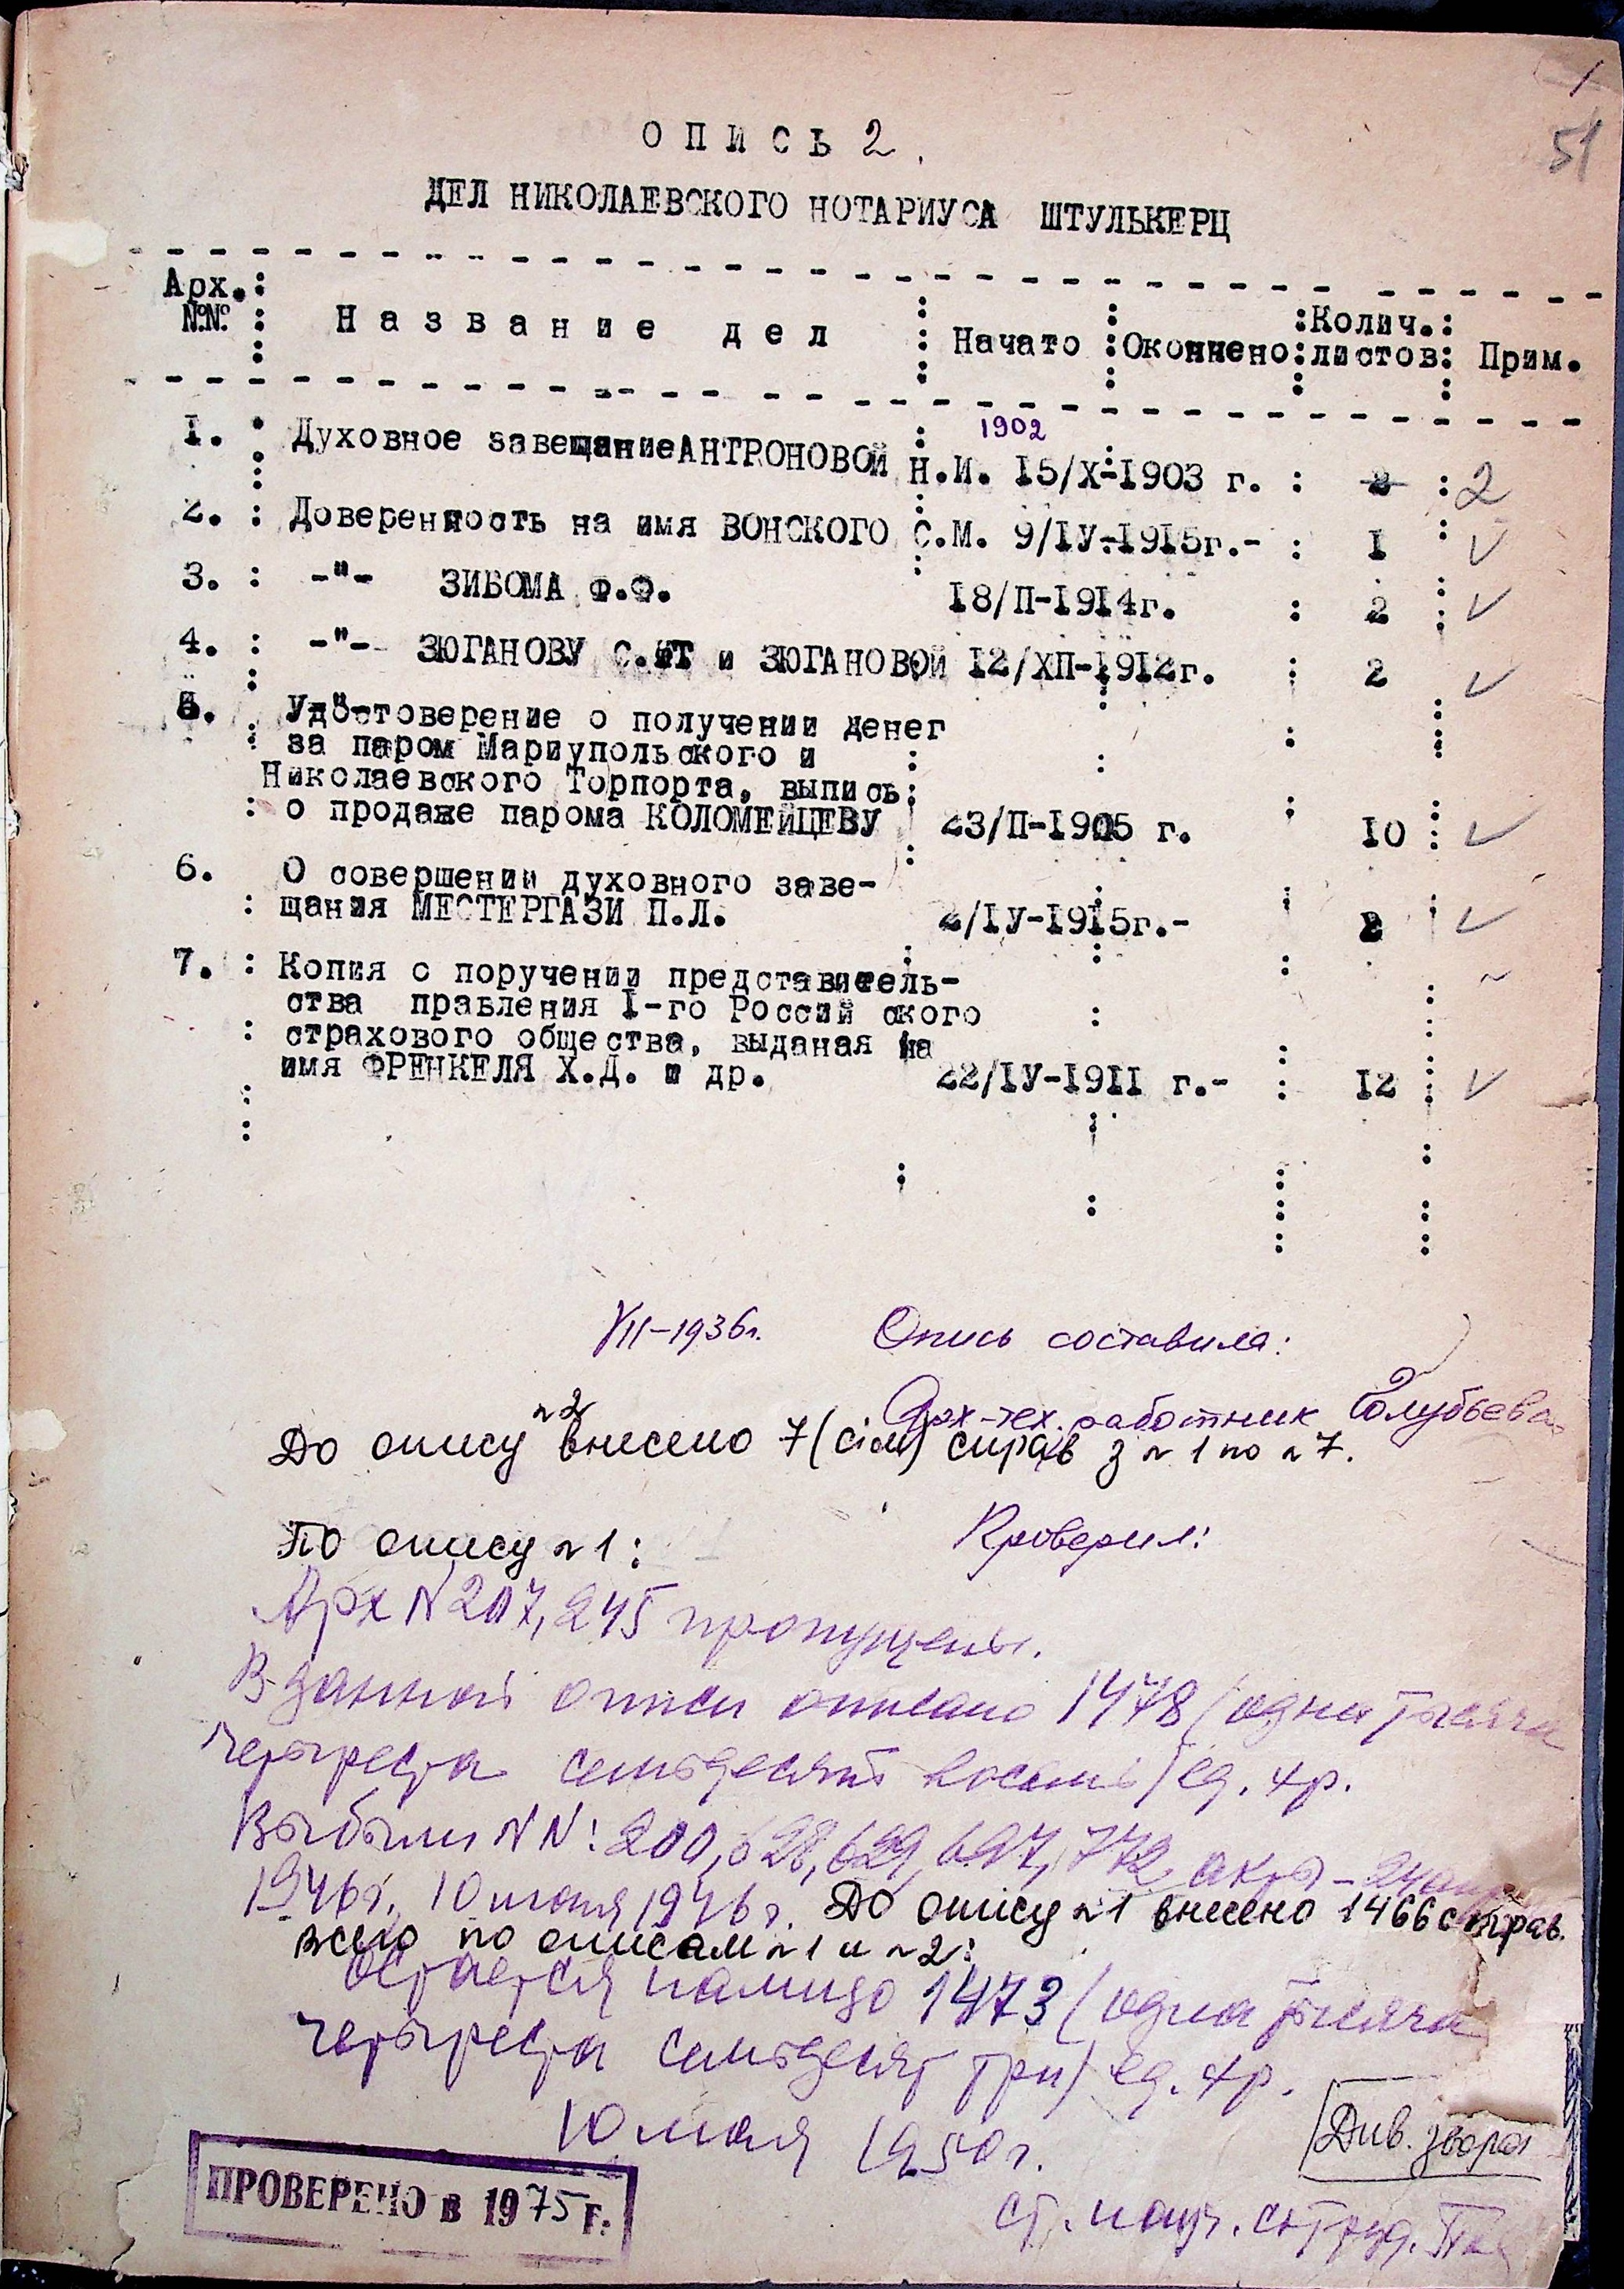 1
51
ОПИСЬ 2.
ДЕЛ НИКОЛАЕВСКОГО НОТАРИУСА ШТУЛЬКЕРЦ
Арх. №№ : Название дел : Начато : Окончено : Колич. листов : Прим.
1902
1. : Духовное завещание АНТРОНОВОЙ Н.И. 15/Х-1903 г. : 2 : 2
2. : Доверенность на имя ВОНСКОГО С.М. 9/IУ-1915г.- : 1 : V
3. : -"- ЗИБОМА Ф.Ф. 18/П-1914г. : 2 : V
4. : -"- ЗЮГАНОВУ С. и ЗЮГАНОВОЙ 12/ХП-1912г. : 2 V
5. Удостоверение о получении денег
за паром Мариупольского и
Николаевского Торпорта, выпись
о продаже парома КОЛОМЕЙЦЕВУ 23/П-1905 г. 10 : V
6. О совершении духовного заве-
щания МЕСТЕРГАЗИ П.Л. 2/IУ-1915г.- 2 V
7. : Копия с поручении представитель-
ства правления I-го Россий ского
страхового общества, выданая на
имя ФРЕНКЕЛЯ Х.Д. и др. 22/IУ-1911 г.- : 12 V
VII-1936г. Опись составила:
Арх-тех. работник Голубьева
До опису №2 внесено 7 (сім) справ з №1 по №7.
Проверил:
По опису №1:
Арх N 207, 245 пропущены.
В данной описи описано 1478 (одна тысяча
четыреста семьдесят восемь) ед. хр.
Выбыли NN: 200, 628, 629, 697, 772 акты
1946г., 10 июня 1946г. До опису №1 внесено 1466 справ.
всего по описам №1 и №2:
остается налицо 1473 (одна тысяча
четыреста семьдесят три) ед. хр.
10 мая 1950г.
Див. зворот
ст. науч. сотруд.
ПРОВЕРЕНО в 1975 г.